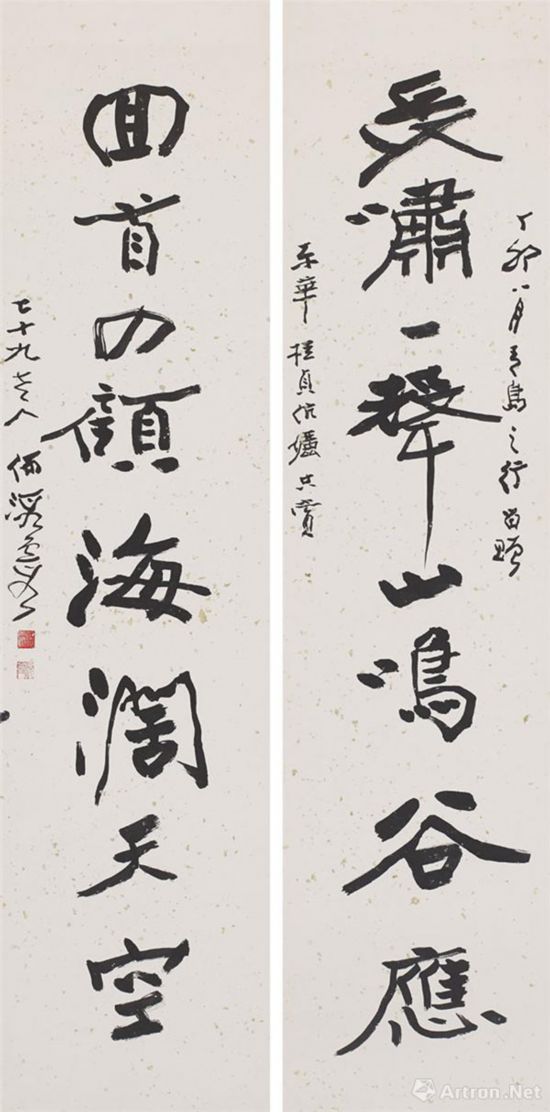 丁卯八月青島之行留贈
長嘯一聲山鳴谷應
東華桂貞伉儷共賞
回首四顧海闊天空
七十九老人何海霞
Artron.Net